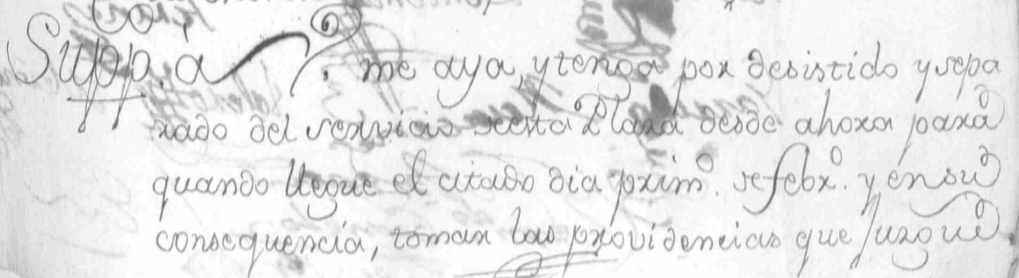 Supp.ᵃ me aya y tenga por desistido y sepa
rado del servicio de esta Plaza desde ahora para
quando llegue el citado dia prim.º de febr.º y en su
consequencia, tomar las providencias que juzgue